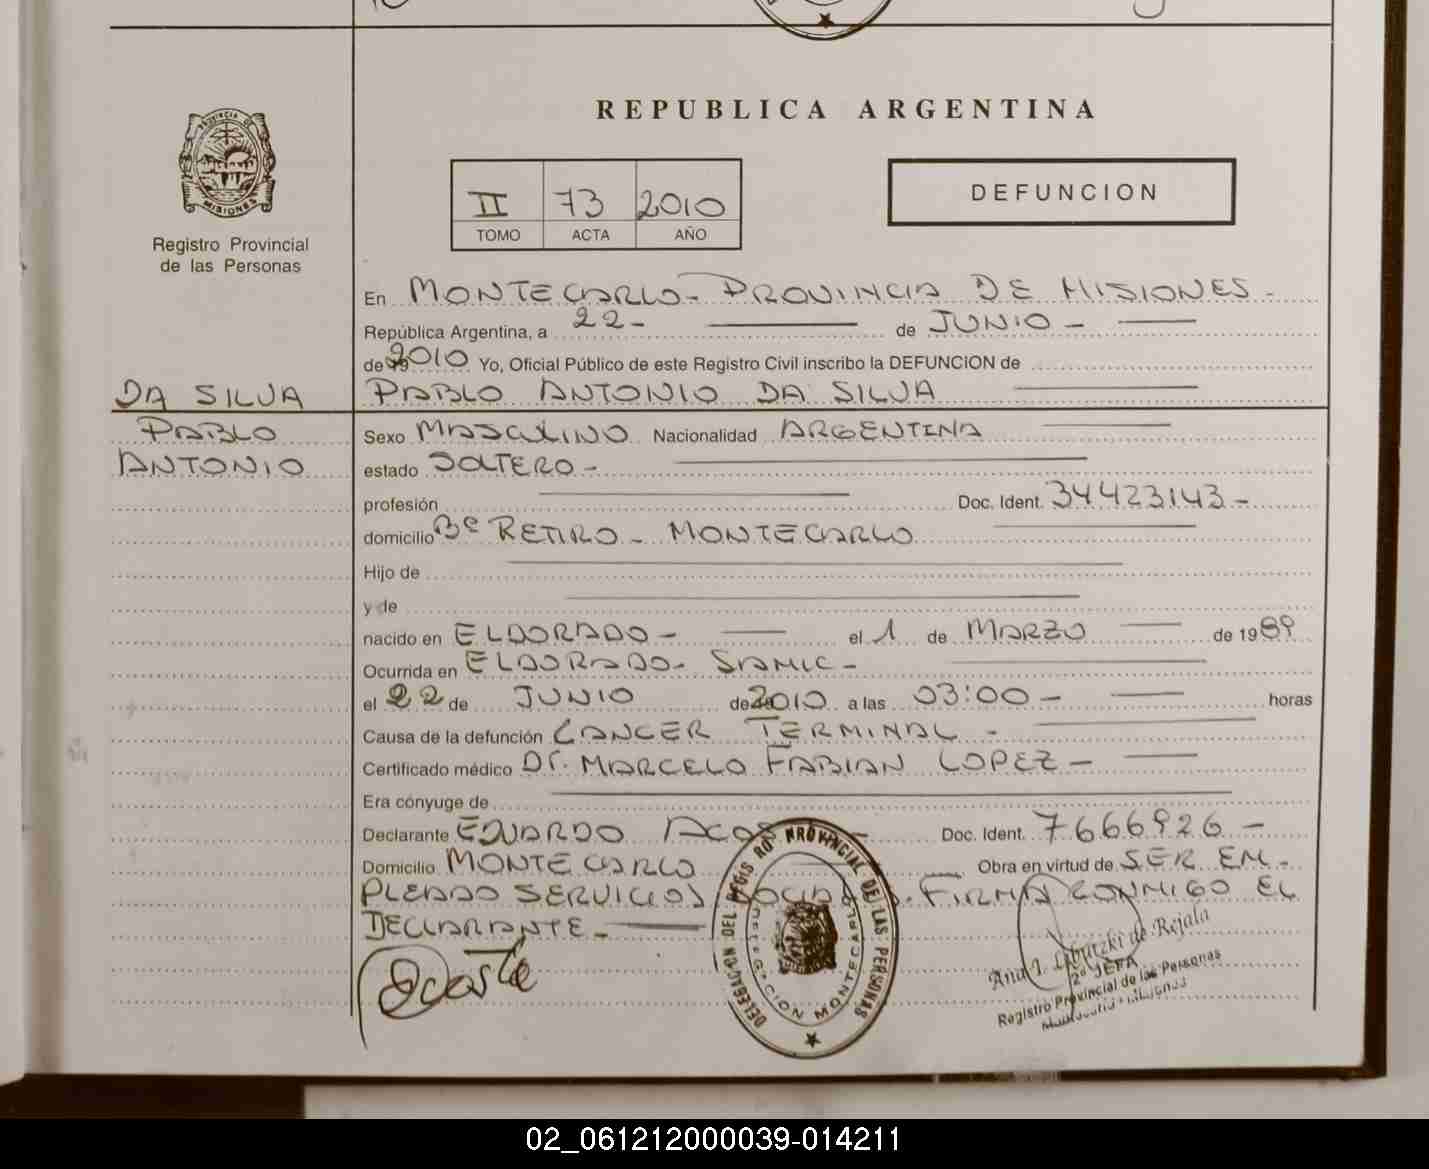 REPUBLICA ARGENTINA
PROVINCIA DE MISIONES
Registro Provincial
de las Personas
II 73 2010
TOMO ACTA AÑO
DEFUNCION
En MONTECARLO - PROVINCIA DE MISIONES -
República Argentina, a 22 - de JUNIO -
de 2010 Yo, Oficial Público de este Registro Civil inscribo la DEFUNCION de
DA SILVA
PABLO
ANTONIO
PABLO ANTONIO DA SILVA
Sexo MASCULINO Nacionalidad ARGENTINA
estado SOLTERO -
profesión Doc. Ident. 34423143 -
domicilio Bº RETIRO - MONTECARLO
Hijo de
y de
nacido en ELDORADO - el 1 de MARZO de 1989
Ocurrida en ELDORADO - SAMIC -
el 22 de JUNIO de 2010 a las 03:00 - horas
Causa de la defunción CANCER TERMINAL -
Certificado médico Dr. MARCELO FABIAN LOPEZ -
Era cónyuge de
Declarante EDUARDO Doc. Ident. 7666926 -
Domicilio MONTECARLO Obra en virtud de SER EM-
PLEADO SERVICIOS SOCIALES. FIRMA CONMIGO EL
DECLARANTE -
DELEGACION DEL REGISTRO PROVINCIAL DE LAS PERSONAS
DELEGACION MONTECARLO
Ana I. de Rejala
2º JEFA
Registro Provincial de las Personas
02_061212000039-014211